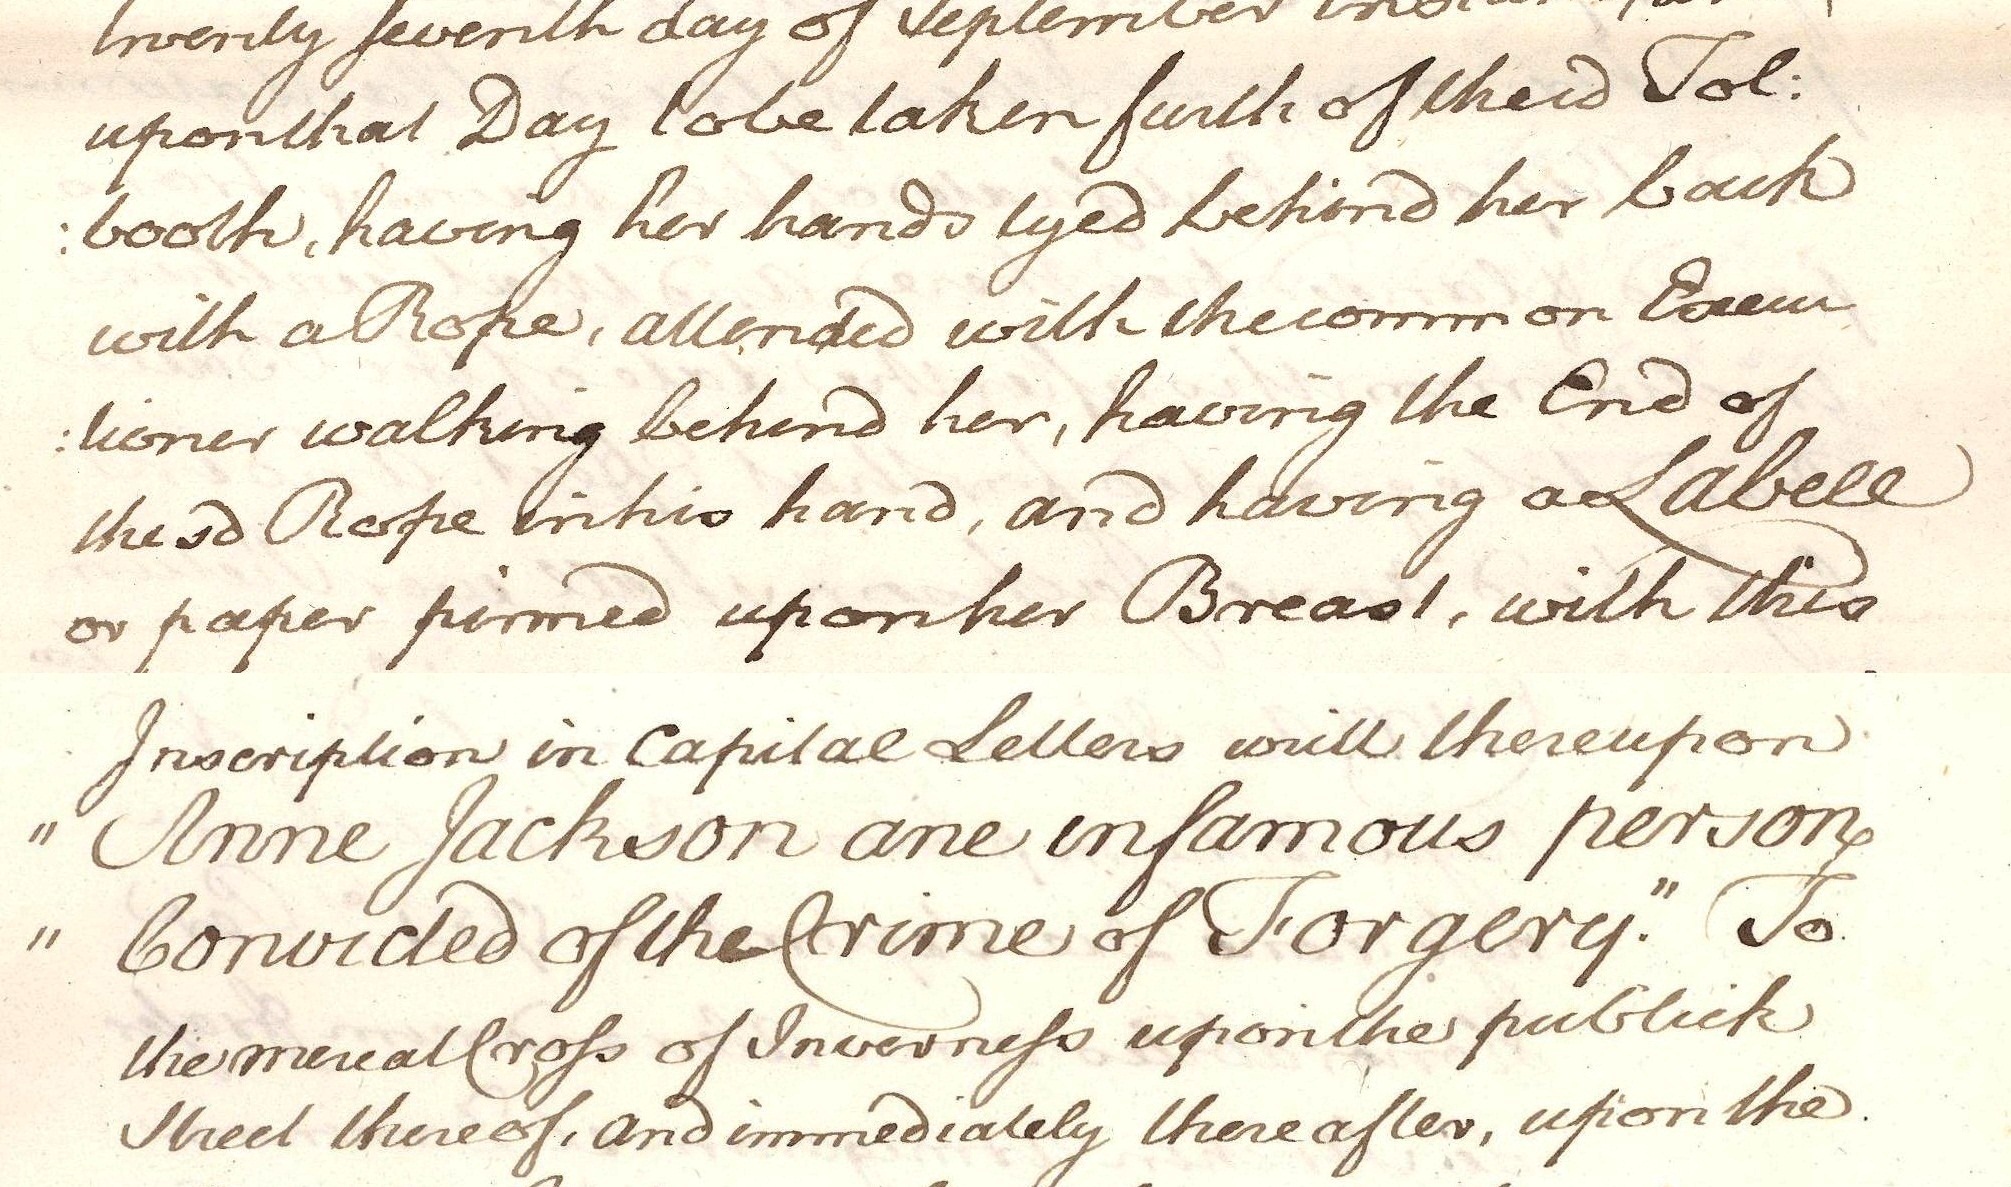 twenty seventh day of September
upon that Day to be taken furth of the sd Tol:
:booth, having her hands tyed behind her back
with a Rope, attended with the common Execu
:tioner walking behind her, having the End of
the sd Rope in his hand, and having a Labell
or paper pinned upon her Breast, with this
Inscription in Capital Letters writt thereupon
" Anne Jackson ane infamous person
" Convicted of the Crime of Forgery." To
the mercat Cross of Inverness upon the publick
Street thereof, and immediately thereafter, upon the